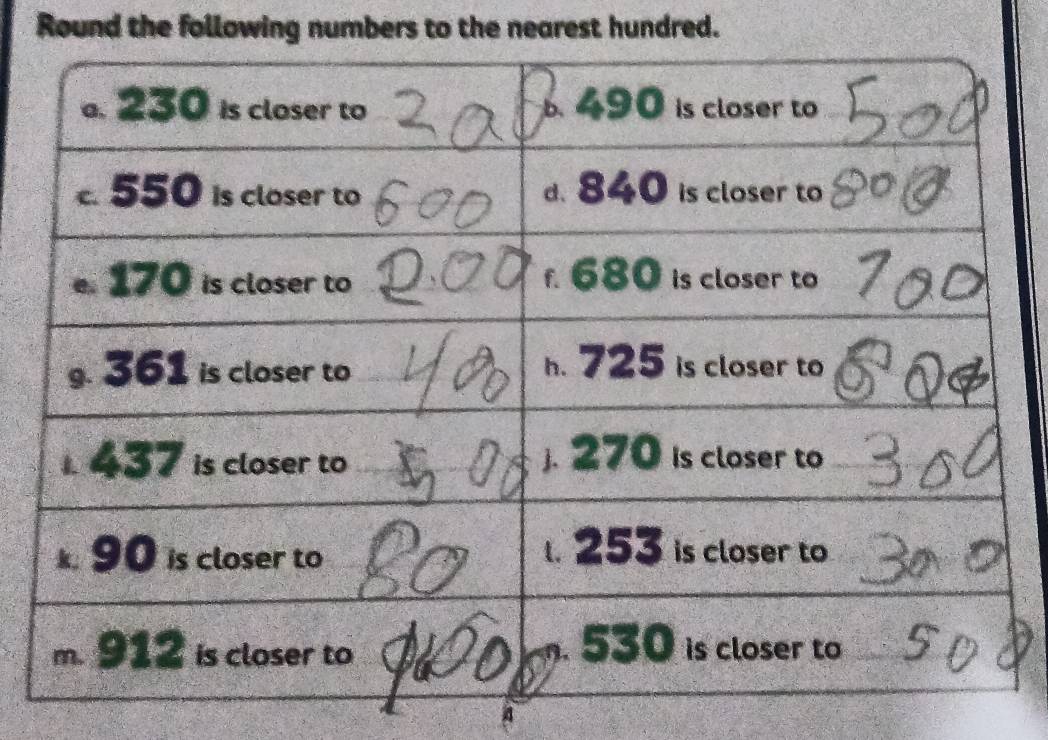 Round the following numbers to the nearest hundred.
a. 230 is closer to 200
b. 490 is closer to 500
c. 550 is closer to 600
d. 840 is closer to 800
e. 170 is closer to 200
f. 680 is closer to 700
g. 361 is closer to 400
h. 725 is closer to 800
i. 437 is closer to 500
j. 270 is closer to 300
k. 90 is closer to 80
l. 253 is closer to 300
m. 912 is closer to
n. 530 is closer to 500